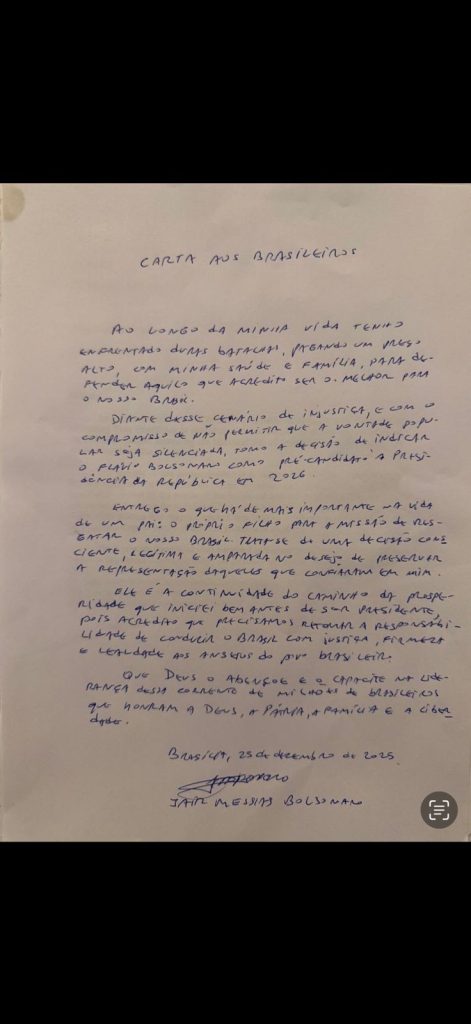 CARTA AOS BRASILEIROS
AO LONGO DA MINHA VIDA TENHO
ENFRENTADO DURAS BATALHAS, PAGANDO UM PREÇO
ALTO, COM MINHA SAÚDE E FAMÍLIA, PARA DE-
FENDER AQUILO QUE ACREDITO SER O MELHOR PARA
O NOSSO BRASIL.
DIANTE DESSE CENÁRIO DE INJUSTIÇA, E COM O
COMPROMISSO DE NÃO PERMITIR QUE A VONTADE POPU-
LAR SEJA SILENCIADA, TOMO A DECISÃO DE INDICAR
O FLÁVIO BOLSONARO COMO PRÉ-CANDIDATO À PRESI-
DÊNCIA DA REPÚBLICA EM 2026.
ENTREGO O QUE HÁ DE MAIS IMPORTANTE NA VIDA
DE UM PAI: O PRÓPRIO FILHO PARA A MISSÃO DE RES-
GATAR O NOSSO BRASIL. TRATA-SE DE UMA DECISÃO CONS-
CIENTE, LEGÍTIMA E AMPARADA NO DESEJO DE PRESERVAR
A REPRESENTAÇÃO DAQUELES QUE CONFIARAM EM MIM.
ELE É A CONTINUIDADE DO CAMINHO DA PROSPE-
RIDADE QUE INICIEI BEM ANTES DE SER PRESIDENTE,
POIS ACREDITO QUE PRECISAMOS RETOMAR A RESPONSABI-
LIDADE DE CONDUZIR O BRASIL COM JUSTIÇA, FIRMEZA
E LEALDADE AOS ANSEIOS DO POVO BRASILEIRO.
QUE DEUS O ABENÇOE E O CAPACITE NA LIDE-
RANÇA DESSA CORRENTE DE MILHÕES DE BRASILEIROS
QUE HONRAM A DEUS, A PÁTRIA, A FAMÍLIA E A LIBER-
DADE.
BRASÍLIA, 25 DE DEZEMBRO DE 2025.
JAIR MESSIAS BOLSONARO